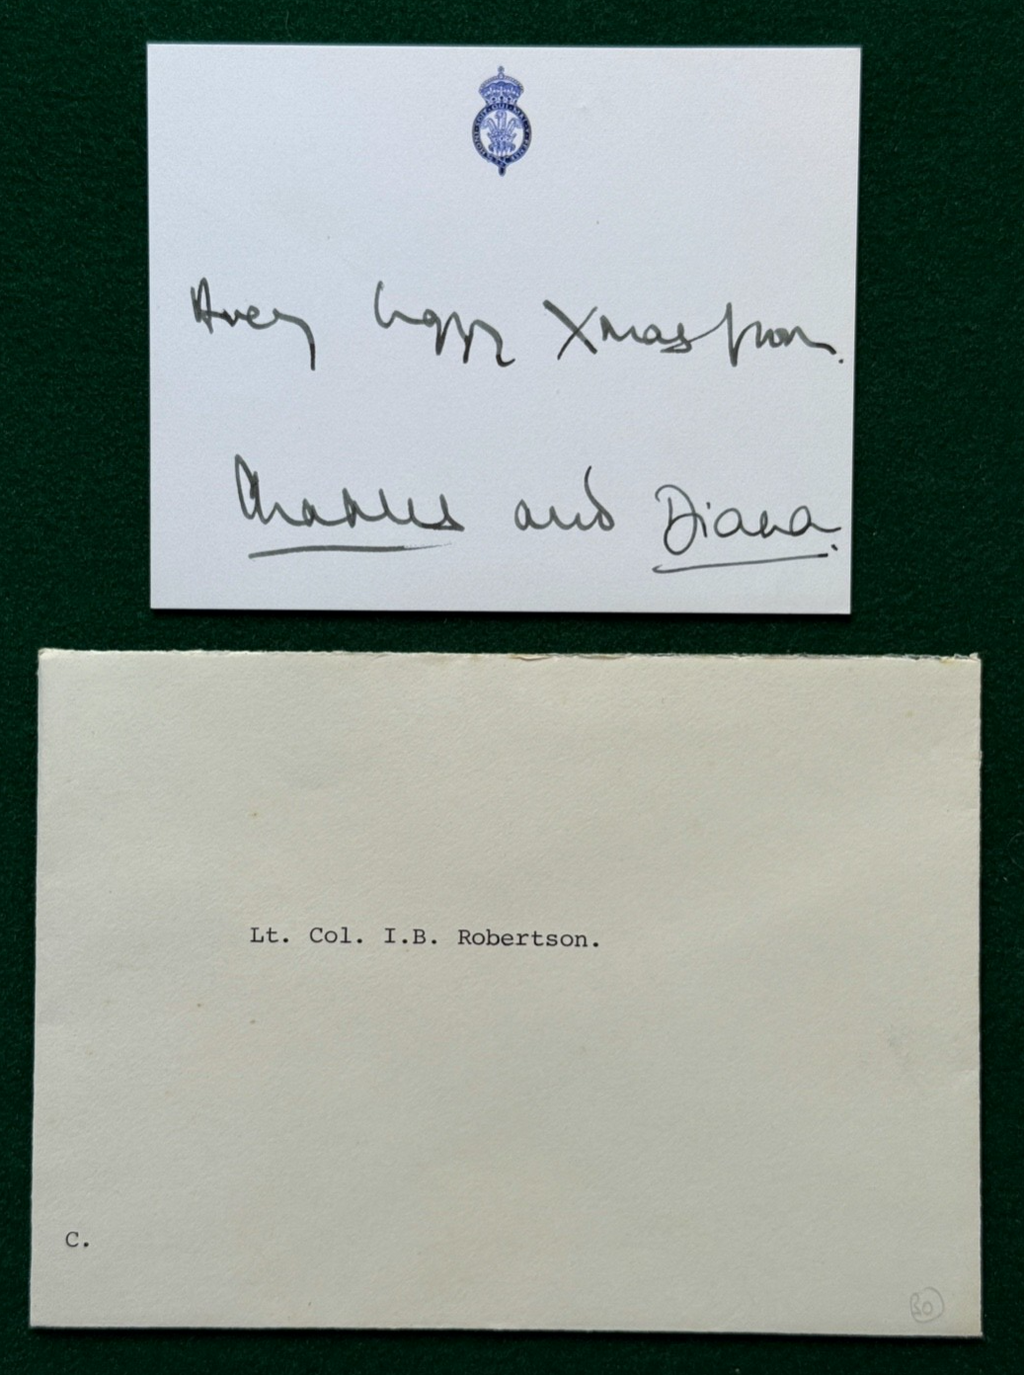 A very happy Xmas from.
Charles and Diana.
Lt. Col. I.B. Robertson.
C.
30